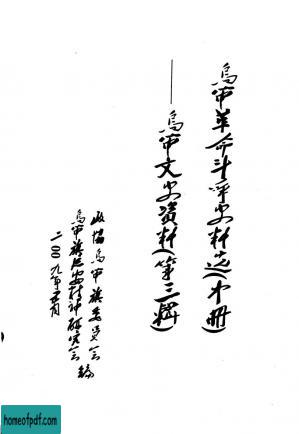 烏审革命斗争史料选(中册)
——烏审文史资料(第三辑)
政协烏审旗委员会
烏审旗延安精神研究会 编
二〇〇九年 月
homeofpdf.com